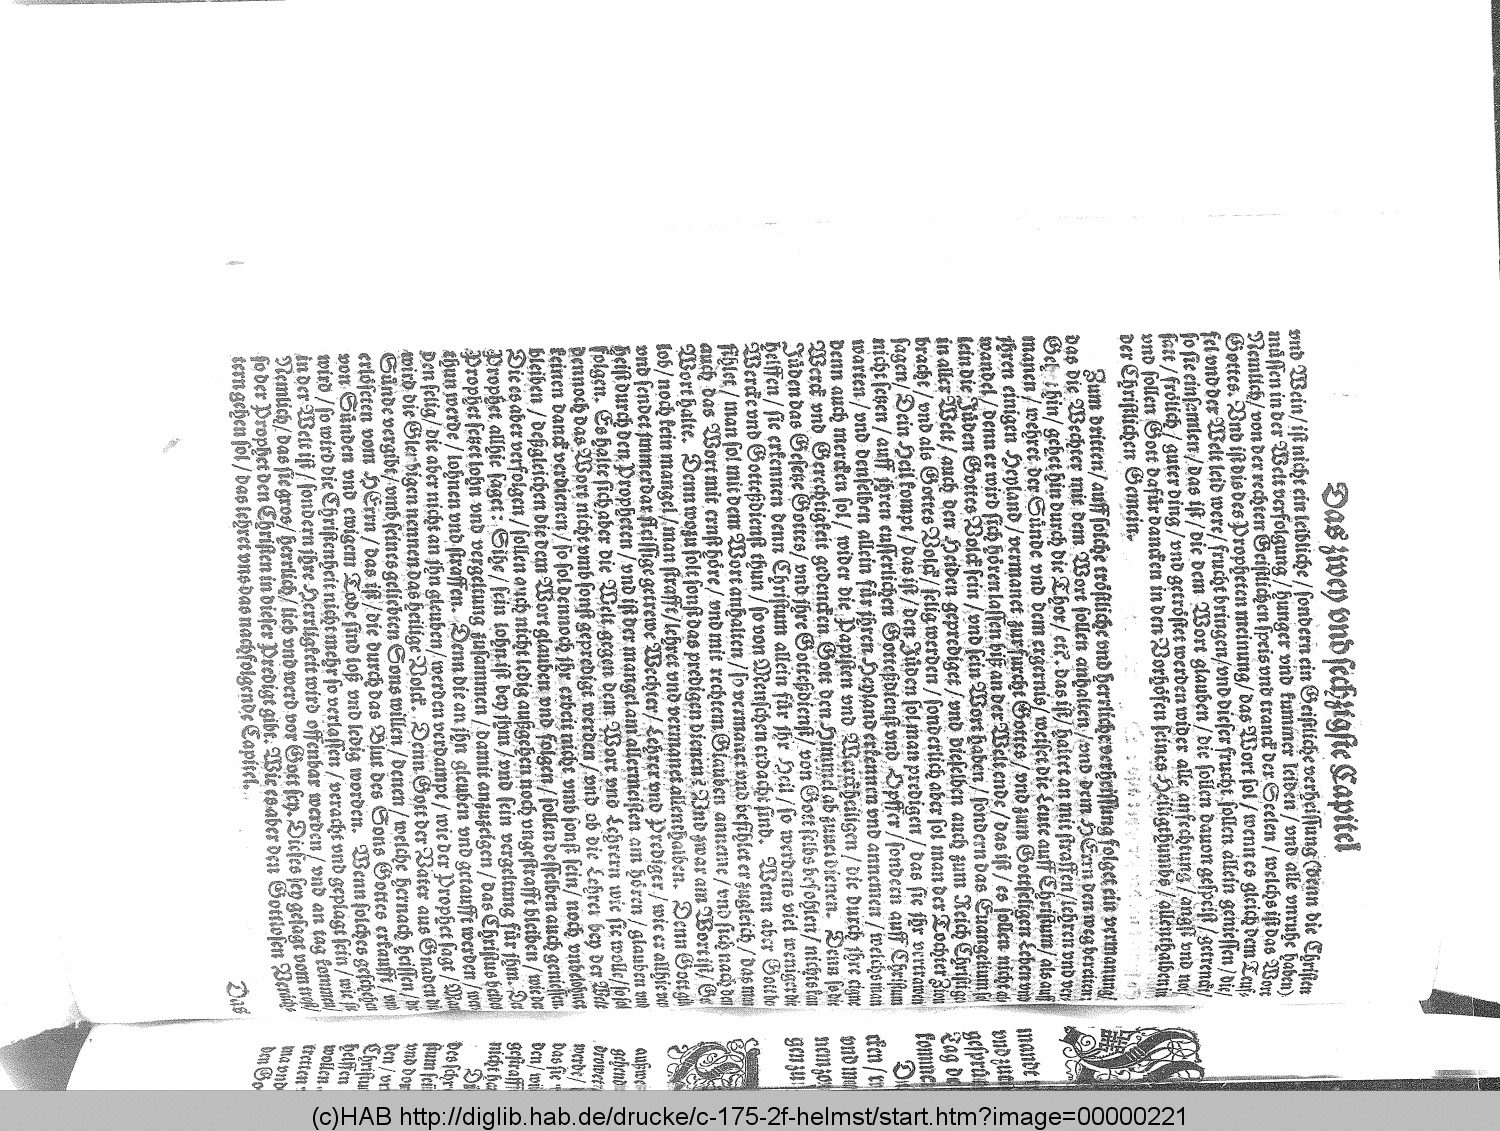 Das zwey vnd sechzigste Capitel
vnd Wein / ist nicht ein leibliche / sondern ein Geistliche verheissung (denn die Christen
müssen in der Welt verfolgung / hunger vnd kummer leiden / vnd alle vnruhe haben)
Nemlich / von der rechten Geistlichen speis vnd tranck der Seelen / welchs ist das Wort
Gottes. Vnd ist das des Propheten meinung / das Wort sol / wenn es gleich dem Teuf-
fel vnd der Welt leid were / frucht bringen / vnd dieser frucht / sollen allein geniessen / die /
so sie einsamlen / das ist / die dem Wort glauben / die sollen dauon gespeist / getrenckt /
satt / frölich / guter ding / vnd getröstet werden wider alle anfechtung / angst vnd not /
vnd sollen Gott dafür dancken in den Vorhöfen seines Heiligthumbs / allenthalben in
der Christlichen Gemein.
Zum dritten / auff solche tröstliche vnd herrliche verheissung folget ein vermanung /
das die Wechter mit dem Wort sollen anhalten / vnd dem HErrn den weg bereiten:
hin / gehet hin durch die Thor / etc. das ist / haltet an mit straffen / lehren vnd ver-
manen / wehret der Sünde vnd dem ergernis / weiset die Leute auff Christum / als auff
ihren einigen Heyland / vermanet zur furcht Gottes / vnd zum Gottseligen Leben vnd
wandel / denn er wird sich hören lassen biß an der Welt ende / das ist / es sollen nicht al-
lein die Jüden Gottes Volck sein / vnd sein Wort haben / sondern das Euangelium sol
in aller Welt / auch den Heiden geprediget / vnd dieselben auch zum Reich Christi ge-
bracht / vnd als Gottes Volck / selig werden / sonderlich aber sol man der Tochter Zion
sagen / Dein Heil kompt / das ist / den Jüden sol man predigen / das sie ihr vertrawen
nicht setzen / auff ihren eusserlichen Gottesdienst vnd Opffer / sondern auff Christum
warten / vnd denselben allein für ihren Heyland erkennen vnd annemen / welchs man
denn auch mercken sol / wider die Papisten vnd Werckheiligen / die durch ihre eigne
Werck vnd Gerechtigkeit gedencken Gott den Himmel ab zuuerdienen. Denn so die
Jüden das Gesetze Gottes / vnd ihre Gottesdienst / von Gott selbs befohlen / nichts kan
helffen / sie erkennen denn Christum allein für ihr Heil / so werdens viel weniger die
Wercke vnd Gottesdienst thun / so von Menschen erdacht sind. Wenn aber Gott be-
fihlet / man sol mit dem Wort anhalten / so vermanet vnd befihlet er zugleich / das man
auch das Wort mit ernst höre / vnd mit rechtem Glauben anneme / vnd sich nach dem
Wort halte. Denn wozu solt sonst das predigen dienen? Vnd zwar am Wort ist /
lob / noch kein mangel / man straffe / lehret vnd vermanet allenthalben. Denn Gott
vnd sendet immerdar fleissige getrewe Wechter / Lehrer vnd Prediger / wie er allhie
heist durch den Propheten / vnd ist der mangel am allermeisten am hören glauben vnd
folgen. Es halte sich aber die Welt gegen dem Wort vnd Lehrern wie sie wolle / so sol
dennoch das Wort nicht vmb sonst gepredigt werden / vnd ob die Lehrer bey der Welt
keinen danck verdienen / so sol dennoch ihr erbeit nicht vmb sonst sein / noch vnbelohnet
bleiben / deßgleichen die dem Wort glauben vnd folgen / sollen desselben auch geniessen /
Die es aber verfolgen / sollen auch nicht ledig außgehen noch vngestrafft bleiben / wie der
Prophet allhie saget: Sihe / sein lohn ist bey ihm / vnd sein vergeltung für ihm. Der
Prophet setzet lohn vnd vergeltung zusammen / damit anzuzeigen / das Christus beides
thun werde / lohnen vnd straffen. Denn die an ihn gleuben vnd getaufft werden / wer-
den selig / die aber nicht an ihn gleuben / werden verdampt / wie der Prophet sagt / Man
wird die Gleubigen nennen das heilige Volck. Denn Gott der Vater aus Gnaden die
Sünde vergibt / vmb seines geliebten Sons willen / denen / welche hernach heissen / die
erlöseten vom HErrn / das ist / die durch das Blut des Sons Gottes erkaufft / vnd
von Sünden vnd ewigem Tode sind loß vnd ledig worden. Wenn solches geschehen
wird / so wird die Christenheit nicht mehr so verlassen / veracht vnd geplagt sein / wie sie
in der Welt ist / sondern ihre Herrligkeit wird offenbar werden / vnd an tag kommen /
Nemlich / das sie gros / herrlich / lieb vnd werd vor Gott sey. Dieses sey gesagt vom trost /
so der Prophet den Christen in dieser Predigt gibt. Wie es aber den Gottlosen Wenich-
tern gehen sol / das lehret vns das nachfolgende Capitel.
Das